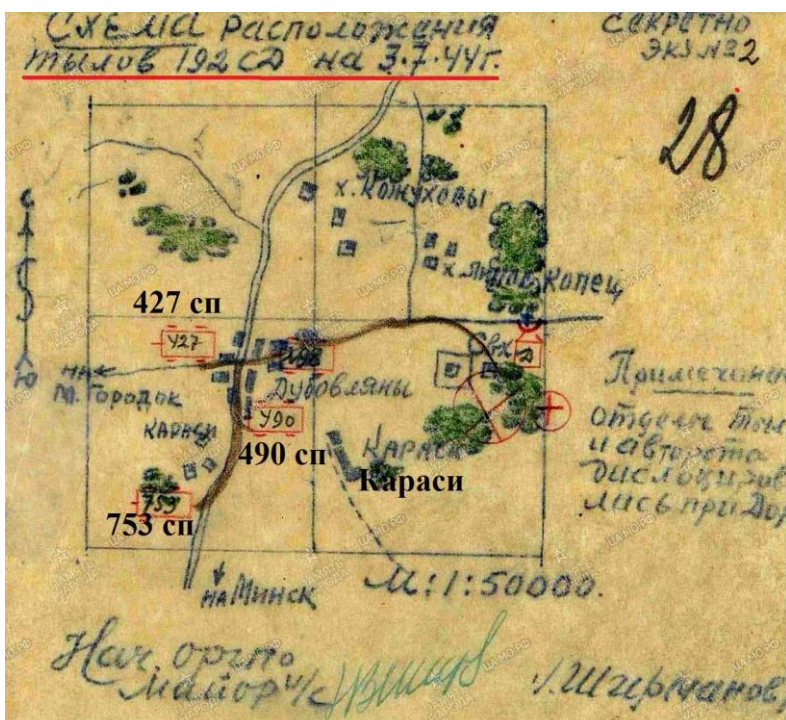 Схема расположения
тылов 192 СД на 3.7.44г.
Секретно
Экз №2
28
С
Ю
х. Кожуховы
Копец
427 сп
427
на
м. Городок
Дубовляны
490
Караси
490 сп
Караси
Караси
753 сп
Свх
на Минск
М: 1:50000.
Примечание
отделы
и авторота
дислоциров
лись при
Нач. оргпо
майор и/с